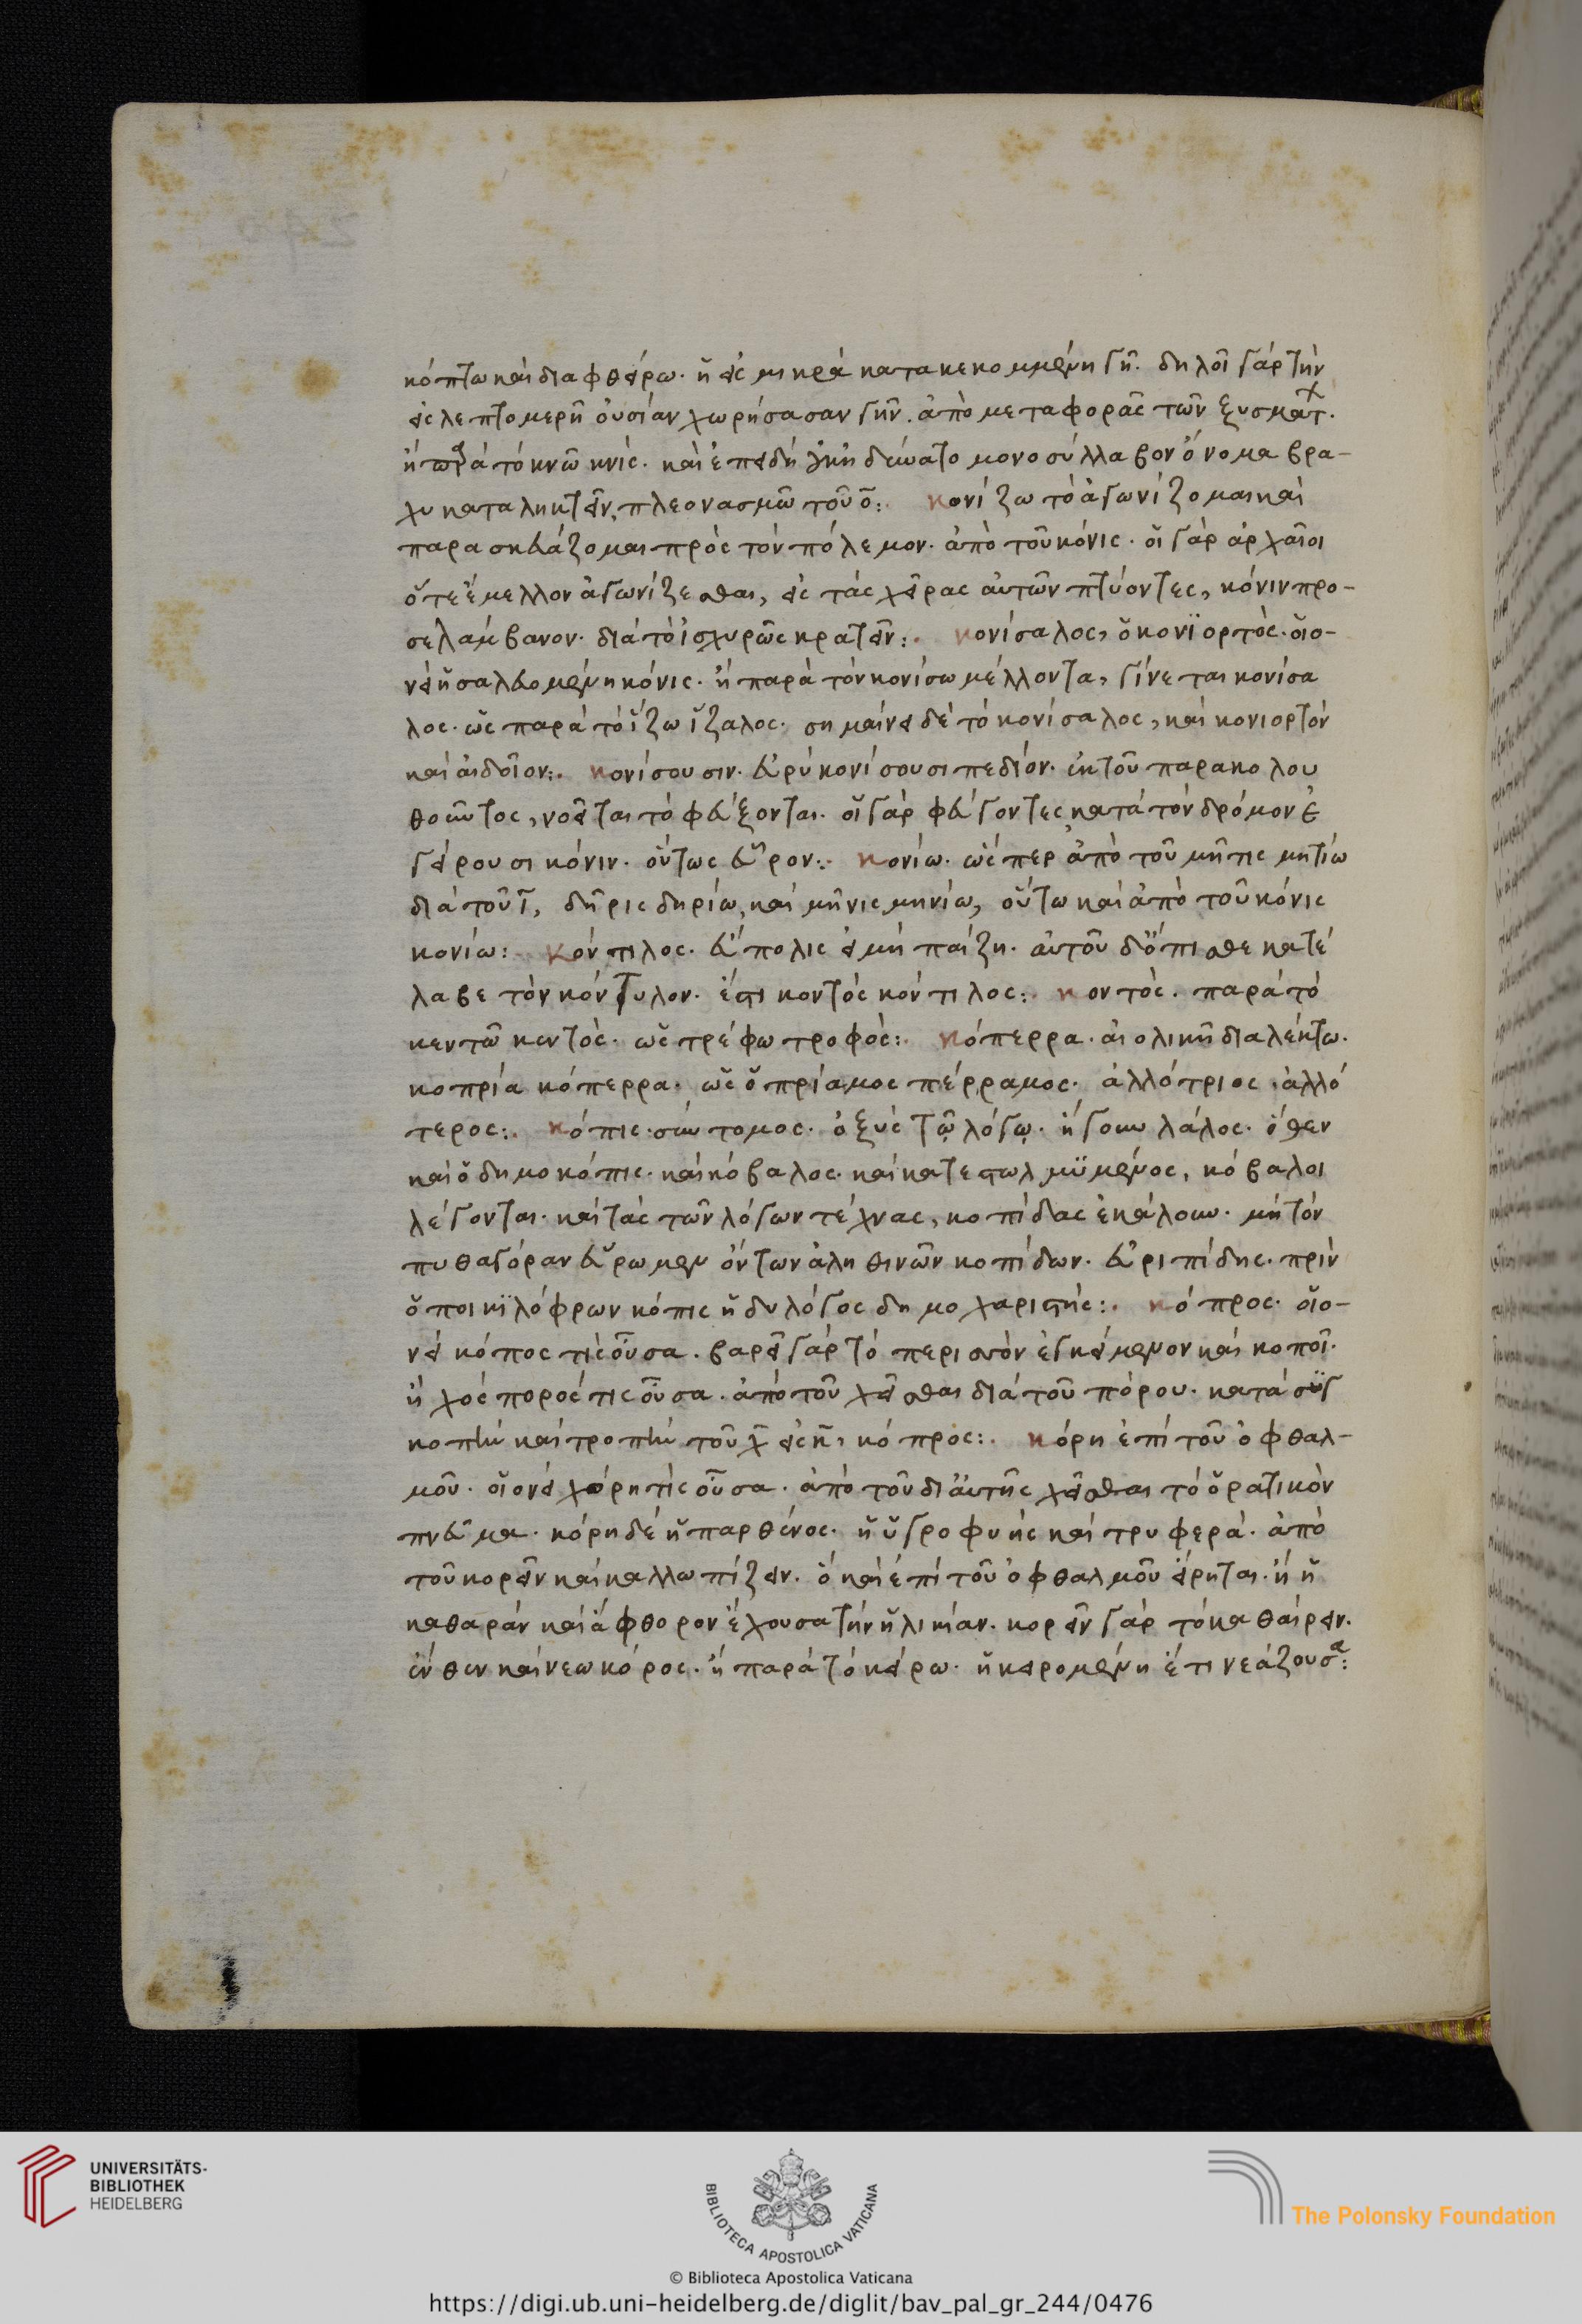 κόπτω καὶ διαφθείρω. ἡ εἰς μικρὰ κατακεκομμένη γῆ. δηλοῖ γὰρ τὴν
εἰς λεπτομερῆ οὐσίαν χωρήσασαν γῆν. ἀπὸ μεταφορᾶς τῶν ξυσμάτ.
ἢ παρὰ τὸ κνῶ κνὶς. καὶ ἐπειδὴ οὐκ ἠδύνατο μονοσύλλαβον ὄνομα βρα-
χυκαταληκτεῖν, πλεονασμῶ τοῦ ο:. κονίζω τὸ ἀγωνίζομαι καὶ
παρασκευάζομαι πρὸς τὸν πόλεμον. ἀπὸ τοῦ κόνις. οἱ γὰρ ἀρχαῖοι
ὅτε ἔμελλον ἀγωνίζεσθαι, εἰς τὰς χεῖρας αὐτῶν πτύοντες, κόνιν προ-
σελάμβανον. διὰ τὸ ἰσχυρῶς κρατεῖν:. κονίσαλος, ὁ κονϊορτὸς. οἱο-
νεὶ ἡ σαλευομένη κόνις. ἢ παρὰ τὸν κονίσω μέλλοντα, γίνεται κονίσα
λος. ὡς παρὰ τὸ ἵζω ἵζαλος. σημαίνει δὲ τὸ κονίσαλος, καὶ κονιορτὸν
καὶ αἰδοῖον:. κονίσουσιν. εὐρὺ κονίσουσι πεδίον. ἐκ τοῦ παρακολου
θοῦντος, νοεῖται τὸ φεύξονται. οἱ γὰρ φεύγοντες κατὰ τὸν δρόμον ἐ
γείρουσι κόνιν. οὕτως εὗρον:. κονίω. ὥσπερ ἀπὸ τοῦ μῆτις μητίω
διὰ τοῦ ϊ, δῆρις δηρίω, καὶ μῆνις μηνίω, οὕτω καὶ ἀπὸ τοῦ κόνις
κονίω: κόντιλος. εὔπολις εἰ μὴ παίζη. αὐτοῦ δ' ὄπισθε κατέ
λαβε τὸν κόντυλον. ἔστι κοντὸς κόντιλος:. κοντὸς. παρὰ τὸ
κεντῶ κεντὸς. ὡς τρέφω τροφὸς:. κόπερρα. αἰολικῆ διαλέκτω.
κοπρία κόπερρα. ὡς ὁ πρίαμος πέρραμος. ἀλλότριος ἀλλό
τερος:. κόπις. σύντομος. ὀξὺς τῷ λόγῳ. ἤγουν λάλος. ὅθεν
καὶ ὁ δημοκόπις. καὶ κόβαλος. καὶ κατεστωλμϋμένος, κόβαλοι
λέγονται. καὶ τὰς τῶν λόγων τέχνας, κοπίδας ἐκάλουν. μὴ τὸν
πυθαγόραν εὕρωμεν ὄντων ἀληθινῶν κοπίδων. εὐριπίδης. πρὶν
ὁ ποικϊλόφρων κόπις ἡδυλόγος δημοχαριστὴς:. κόπρος. οἱο-
νεὶ κόπος τὶς οὖσα. βαρεῖ γὰρ τὸ περισσὸν ἐγκείμενον καὶ κοποῖ.
ἢ χοὸς πορός τις οὖσα. ἀπὸ τοῦ χεῖσθαι διὰ τοῦ πόρου. κατὰ συγ
κοπὴν καὶ τροπὴν τοῦ χ εἰς κ, κόπρος:. κόρη ἐπὶ τοῦ ὀφθαλ-
μοῦ. οἱονεὶ χόρη τὶς οὖσα. ἀπὸ τοῦ δι' αὐτῆς χεῖσθαι τὸ ὁρατικὸν
πνεῦμα. κόρη δὲ ἡ παρθένος. ἡ ὑγροφυὴς καὶ τρυφερά. ἀπὸ
τοῦ κορεῖν καὶ καλλωπίζειν. ὃ καὶ ἐπὶ τοῦ ὀφθαλμοῦ εἴρηται. ἢ ἡ
καθαρὰν καὶ ἄφθορον ἔχουσα τὴν ἡλικίαν. κορεῖν γὰρ τὸ καθαίρειν.
ἔνθεν καὶ νεωκόρος. ἢ παρὰ τὸ κείρω. ἡ κειρομένη ἔτι νεάζουσα:
UNIVERSITÄTS-
BIBLIOTHEK
HEIDELBERG
BIBLIOTECA APOSTOLICA VATICANA
The Polonsky Foundation
© Biblioteca Apostolica Vaticana
https://digi.ub.uni-heidelberg.de/diglit/bav_pal_gr_244/0476